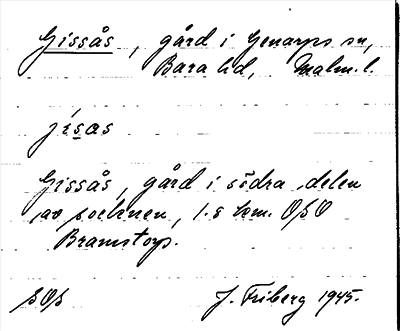 Gissås, gård i Genarps sn,
Bara hd, Malm.l.
jísas
Gissås, gård i södra delen
av socknen, 1.8 km. OSO
Bramstorp.
SOS J. Friberg 1945.